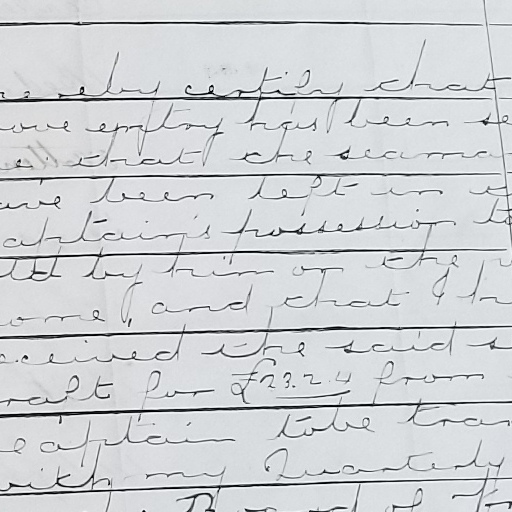 ereby certify that
ove entry has been se
e: that the seama
ave been left in
aptain's possession to
ld by him on the
ome, and that I h
ceived the said s
raft for £23.2.4 from
e captain to be tran
with my Quarterly
Board of Tr